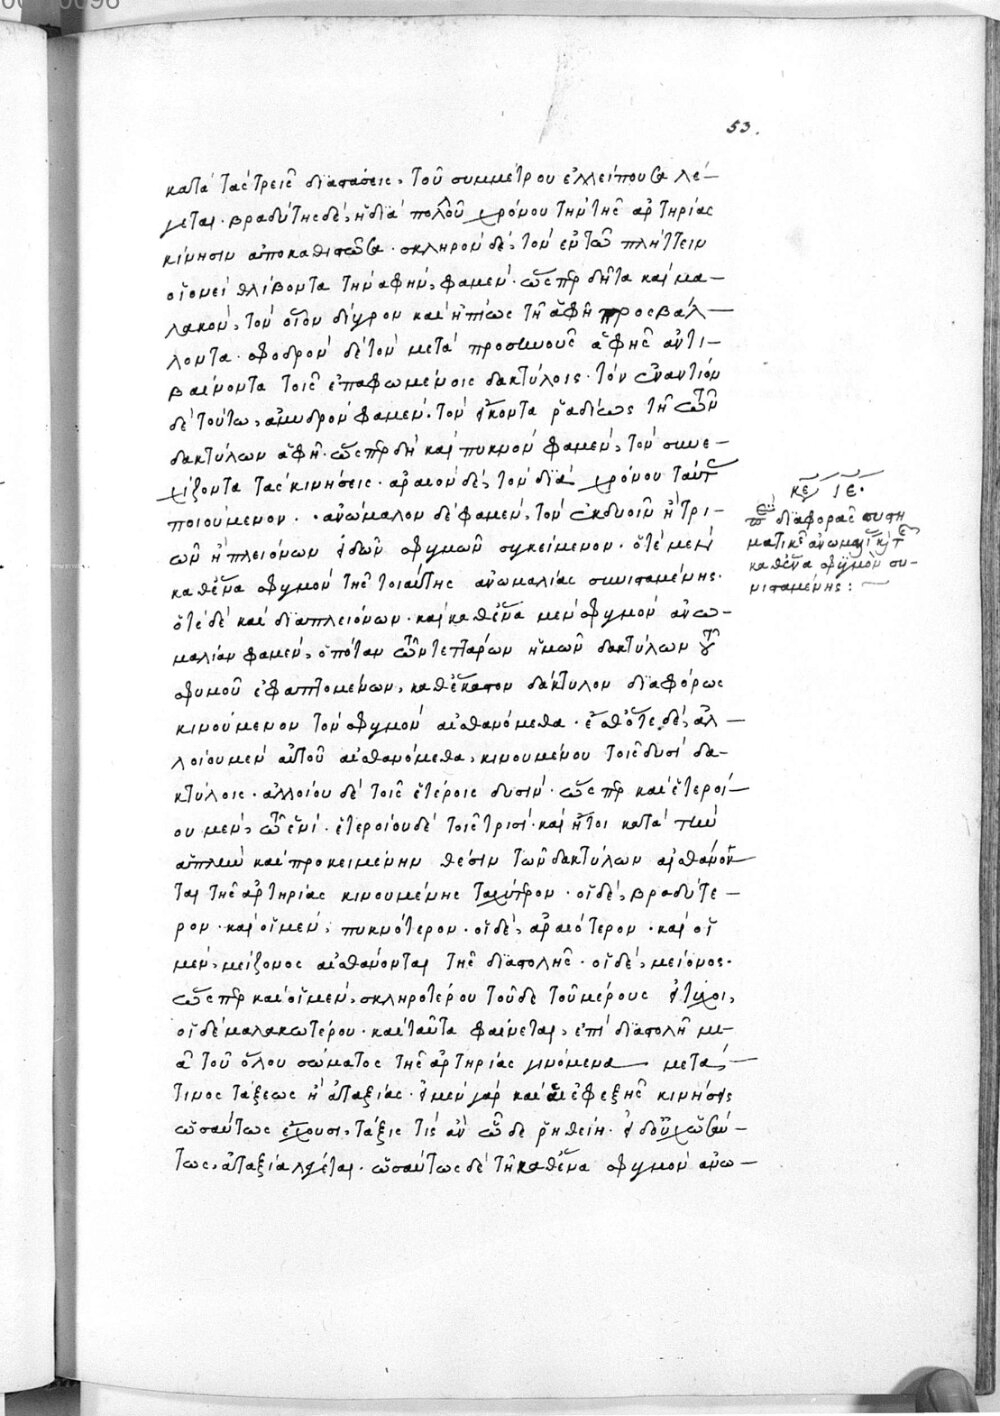 53.
κατὰ τὰς τρεῖς διαστάσεις, τοῦ συμμέτρου ἐλλείπουσα λέ-
γεται. βραδύτης δὲ, ἡ διὰ πολλοῦ χρόνου τὴν τῆς ἀρτηρίας
κίνησιν ἀποκαθιστῶσα. σκληρὸν δὲ, τὸν ἐν τῶ πλήττειν
οἱονεὶ θλίβοντα τὴν ἀφὴν, φαμέν. ὥσπερ δῆτα καὶ μα-
λακὸν, τὸν οἷον δίυγρον καὶ ἠπίως τῆ ἀφῆ προσβάλ-
λοντα. σφοδρὸν δὲ τὸν μετὰ προσηνοῦς ἀφῆς ἀντι-
βαίνοντα τοῖς ἐπαφωμένοις δακτύλοις. τὸν ἐναντίον
δὲ τούτω, ἀμυδρὸν φαμέν. τὸν εἴκοντα ῥαδίως τῆ τῶν
δακτύλων ἀφῆ. ὥσπερ δὴ καὶ πυκνὸν φαμὲν, τὸν συνε-
χίζοντα τὰς κινήσεις. ἀραιὸν δὲ, τὸν διὰ χρόνου ταύτας
ποιούμενον. ἀνώμαλον δὲ φαμὲν, τὸν ἐκ δυοῖν ἢ τρι-
ῶν ἢ πλειόνων εἰδῶν σφυγμῶν συγκείμενον. ὁτὲ μὲν
καθ' ἕνα σφυγμὸν τῆς τοιαύτης ἀνωμαλίας συνισταμένης.
ὁτὲ δὲ καὶ διὰ πλειόνων. καὶ καθ' ἕνα μὲν σφυγμὸν ἀνω-
μαλίαν φαμὲν, ὁπόταν τῶν τεττάρων ἡμῶν δακτύλων τοῦ
σφυγμοῦ ἐφαπτομένων, καθ' ἕκαστον δάκτυλον διαφόρως
κινούμενον τὸν σφυγμὸν αἰσθανόμεθα. ἔσθ' ὅτε δὲ, ἀλ-
λοίου μὲν αὐτοῦ αἰσθανόμεθα, κινουμένου τοῖς δυσὶ δα-
κτύλοις. ἀλλοίου δὲ τοῖς ἑτέροις δυσίν. ὥσπερ καὶ ἑτεροί-
ου μὲν, τῶ ἑνί. ἑτεροίου δὲ τοῖς τρισί. καὶ ἤτοι κατὰ τὴν
ἁπλῆν καὶ προκειμένην θέσιν τῶν δακτύλων αἰσθάνον-
ται τῆς ἀρτηρίας κινουμένης ταχύτερον. οἱ δὲ, βραδύτε-
ρον. καὶ οἱ μὲν, πυκνότερον. οἱ δὲ, ἀραιότερον. καὶ οἱ
μὲν, μείζονος αἰσθάνονται τῆς διαστολῆς. οἱ δὲ, μείονος.
ὥσπερ καὶ οἱ μὲν, σκληροτέρου τοῦδε τοῦ μέρους εἰ τύχοι,
οἱ δὲ μαλακωτέρου. καὶ ταῦτα φαίνεται, ἐπὶ διαστολῆ μι-
ᾶ τοῦ ὅλου σώματος τῆς ἀρτηρίας γινόμενα μετά
τινος τάξεως ἢ ἀταξίας. εἰ μὲν γὰρ καὶ αἱ ἐφεξῆς κινήσεις
ὡσαύτως ἔχουσι, τάξις τὶς ἂν ὧδε ῥηθείη. εἰ δ' οὐχ ὡσαύ-
τως, ἀταξία λέγεται. ὡσαύτως δὲ τῆ καθ' ἕνα σφυγμὸν ἀνω-
κεφ ιε.
περὶ διαφορᾶς συστη
ματικῆς ἀνωμαλίας καὶ τῆς
καθ' ἕνα σφυγμὸν συ-
νισταμένης: